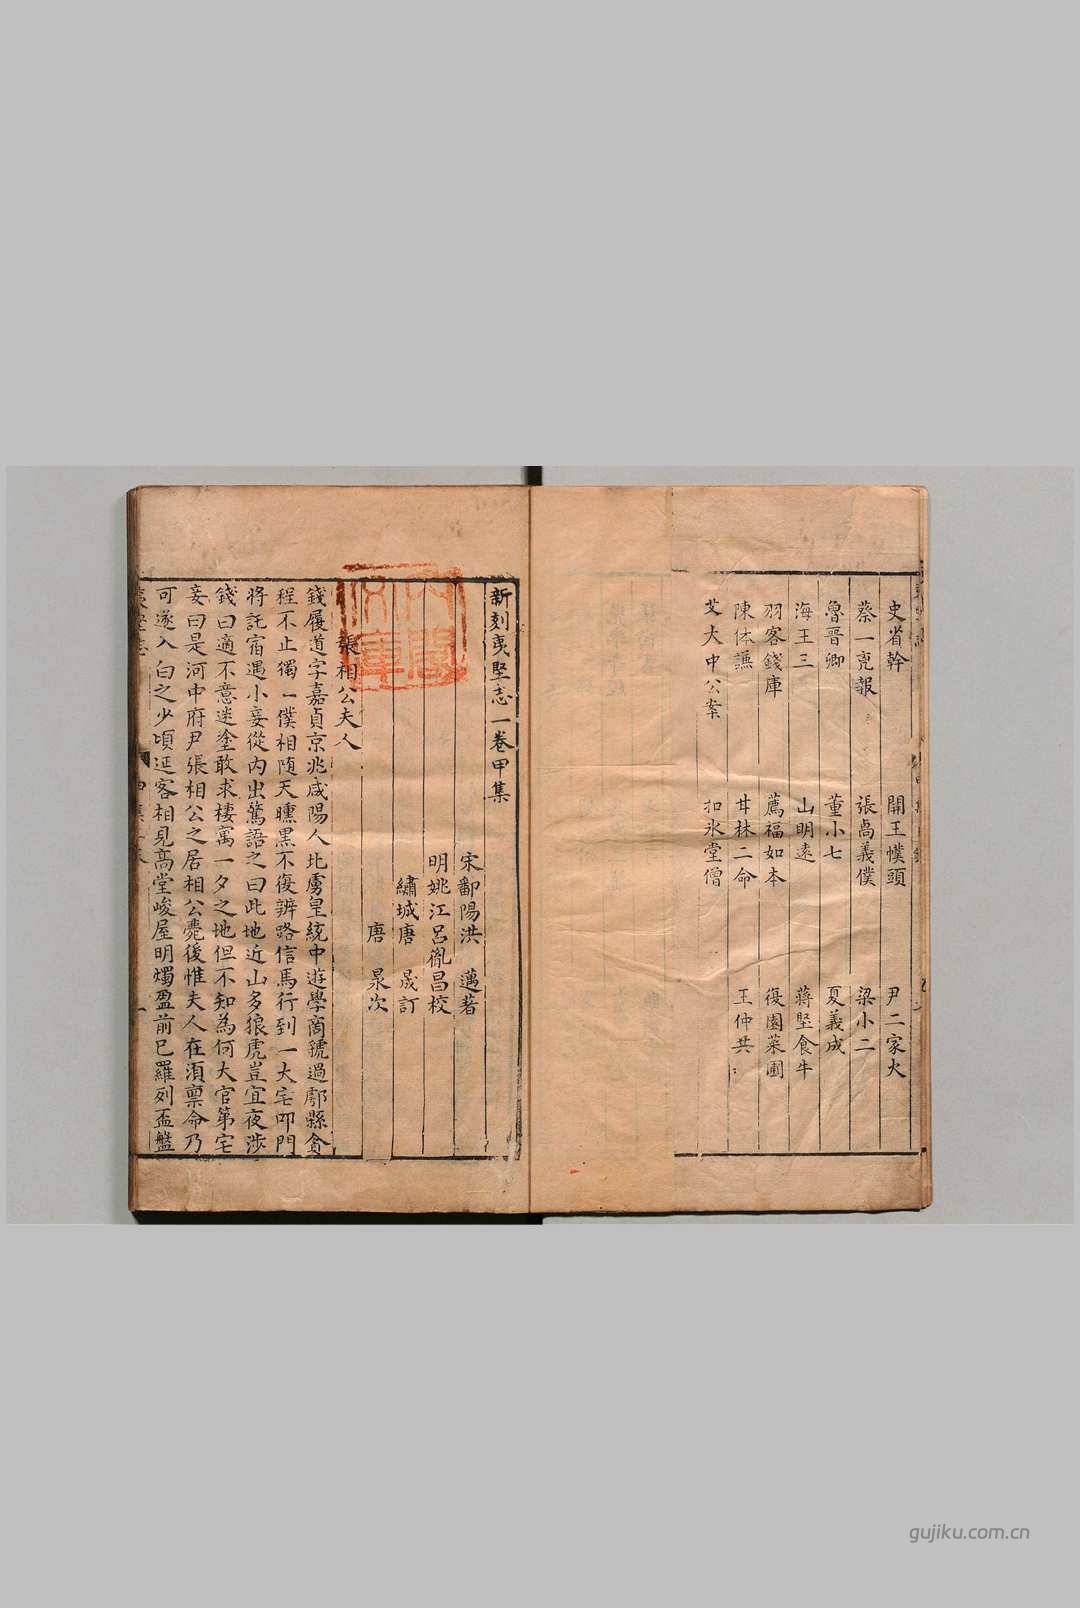 史省幹　開王幞頭　尹二家火
蔡一亮報　張啇義僕　梁小二
魯晋卿　董小七　夏義成
海王三　山明遠　蔣堅食牛
羽客錢庫　薦福如本　復園菜圃
陳体謙　甘林二命　王仲共
艾大中公案　扣氷堂僧
新刻夷堅志一卷甲集
宋鄱陽洪　邁著
明姚江呂胤昌校
繡城唐　晟訂
唐　泉次
張相公夫人
錢履道字嘉貞京兆咸陽人北虜皇統中遊學商虢過鄠縣貪
程不止獨一僕相随天曛黑不復辨路信馬行到一大宅叩門
將託宿遇小妾從內出驚語之曰此地近山多狼虎豈宜夜涉
錢曰適不意迷塗敢求棲寓一夕之地但不知為何大官第宅
妾曰是河中府尹張相公之居相公薨後惟夫人在湏禀命乃
可遂入白之少頃延客相見高堂峻屋明燭盈前已羅列盃盤
gujiku.com.cn